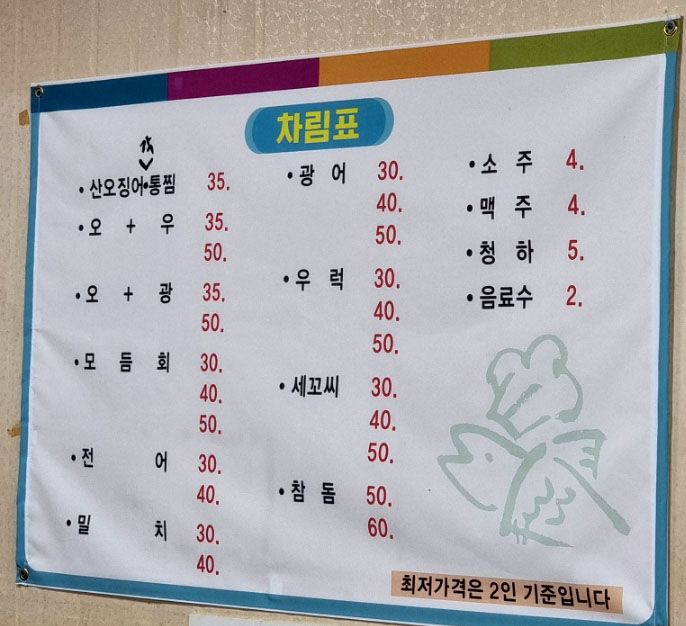 차림표
산오징어•통찜 35.
오 + 우 35.
50.
오 + 광 35.
50.
모 듬 회 30.
40.
50.
전 어 30.
40.
밀 치 30.
40.
광 어 30.
40.
50.
우 럭 30.
40.
50.
세꼬씨 30.
40.
50.
참 돔 50.
60.
소 주 4.
맥 주 4.
청 하 5.
음료수 2.
최저가격은 2인 기준입니다